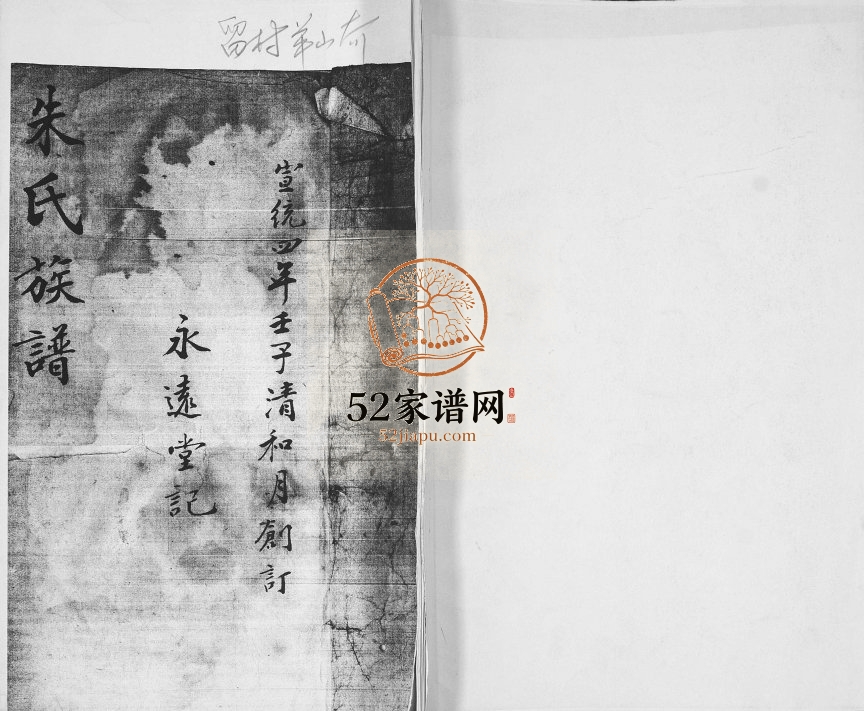 留村弟山介
宣统四年壬子清和月創訂
永遠堂記
朱氏族譜
52家谱网
52jiapu.com